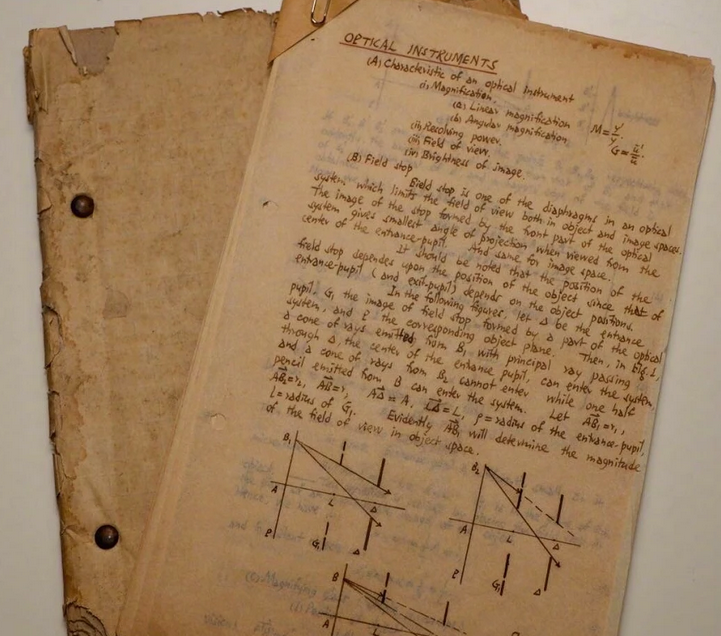 OPTICAL INSTRUMENTS
(A) Characteristic of an optical Instrument
(i) Magnification
(a) Linear magnification M = y'/y
(b) Angular magnification G = u'/u
(ii) Resolving power.
(iii) Field of view.
(iv) Brightness of image.
(B) Field stop
Field stop is one of the diaphragms in an optical
system which limits the field of view both in object and image spaces.
The image of the stop formed by the front part of the optical
system gives smallest angle of projection when viewed from the
center of the entrance-pupil. And same for image space.
It should be noted that the position of the
field stop dependes upon the position of the object since that of
entrance-pupil (and exit-pupil) depends on the object positions.
In the following figures, let Δ be the entrance
pupil, G₁ the image of field stop formed by a part of the optical
system, and P the corresponding object plane. Then, in Fig. 1,
a cone of rays emitted from B₁ with principal ray passing
through Δ, the center of the entrance pupil, can enter the system,
and a cone of rays from B₂ cannot enter while one half
pencil emitted from B can enter the system. Let AB₁=r₁,
AB₂=r₂, AB=r, AΔ=A, LΔ=L, ρ=radius of the entrance-pupil,
l=radius of G₁. Evidently AB₁ will determine the magnitude
of the field of view in object space.
B₁ B₂
A L Δ A L Δ
P G₁ Δ P G₁ Δ
B
A L